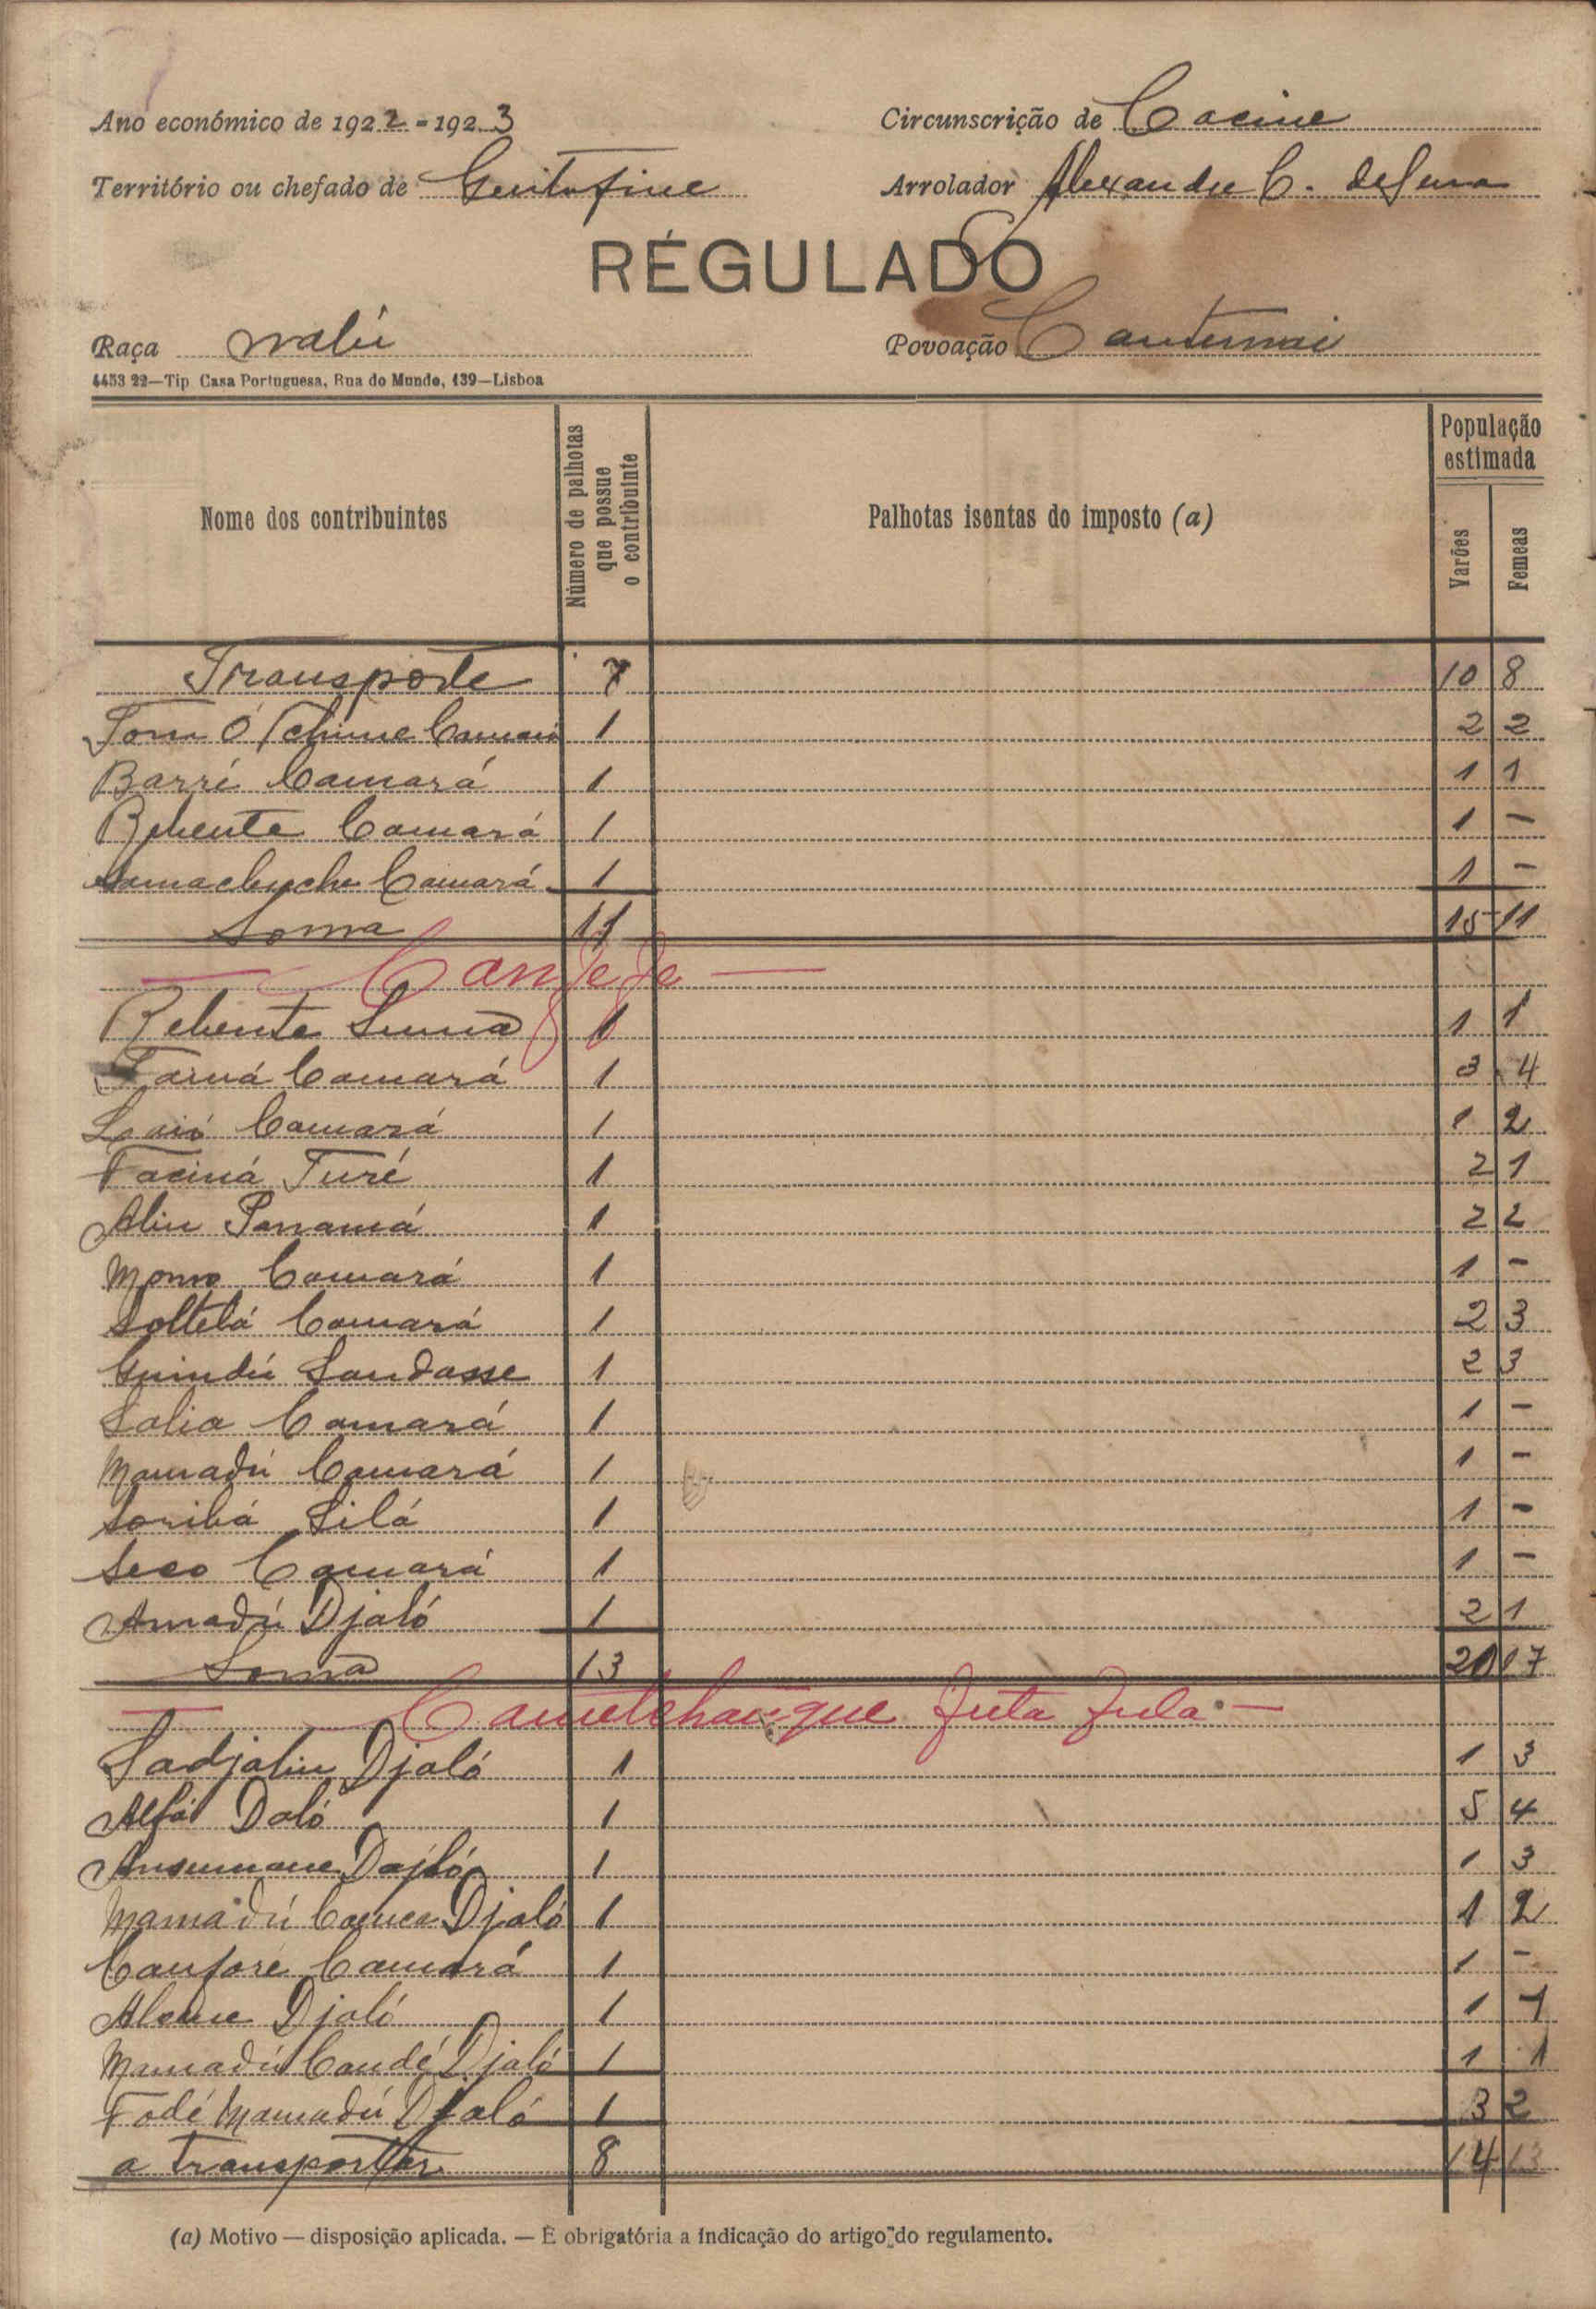 Ano económico de 1922-1923 Circunscrição de Cacine
Território ou chefado de Guitafine Arrolador Alexandre C. de Sena
RÉGULADO
Raça nalú Povoação
4453 22—Tip Casa Portuguesa, Rua do Mundo, 139—Lisboa
Nome dos contribuintes Número de palhotas que possue o contribuinte Palhotas isentas do imposto (a) População estimada Varões Femeas
Transporte 7 10 8
Tom Camará 1 2 2
Barré Camará 1 1 1
Bebente Camará 1 1 -
Camará 1 1 -
Soma 11 15 11
— Canfefe —
Bebente Suma 1 1 1
Farná Camará 1 3 4
Laió Camará 1 1 2
Faciná Turé 1 2 1
Aliu Panamá 1 2 2
Momo Camará 1 1 -
Soltebá Camará 1 2 3
Guindú Sandasse 1 2 3
Salia Camará 1 1 -
Mamadú Camará 1 1 -
Soribá Silá 1 1 -
Seco Camará 1 1 -
Amadú Djaló 1 2 1
Soma 13 20 17
— Cametchangue futa fula —
Sadjaliu Djaló 1 1 3
Alfá Daló 1 5 4
Ansumane Dajló 1 1 3
Mamadú Djaló 1 1 2
Canforé Camará 1 1 -
Djaló 1 1 -1
Mamadú Candé Djaló 1 1 1
Fodé Mamadú Djaló 1 3 2
a transportar 8 14 13
(a) Motivo — disposição aplicada. — É obrigatória a indicação do artigo do regulamento.